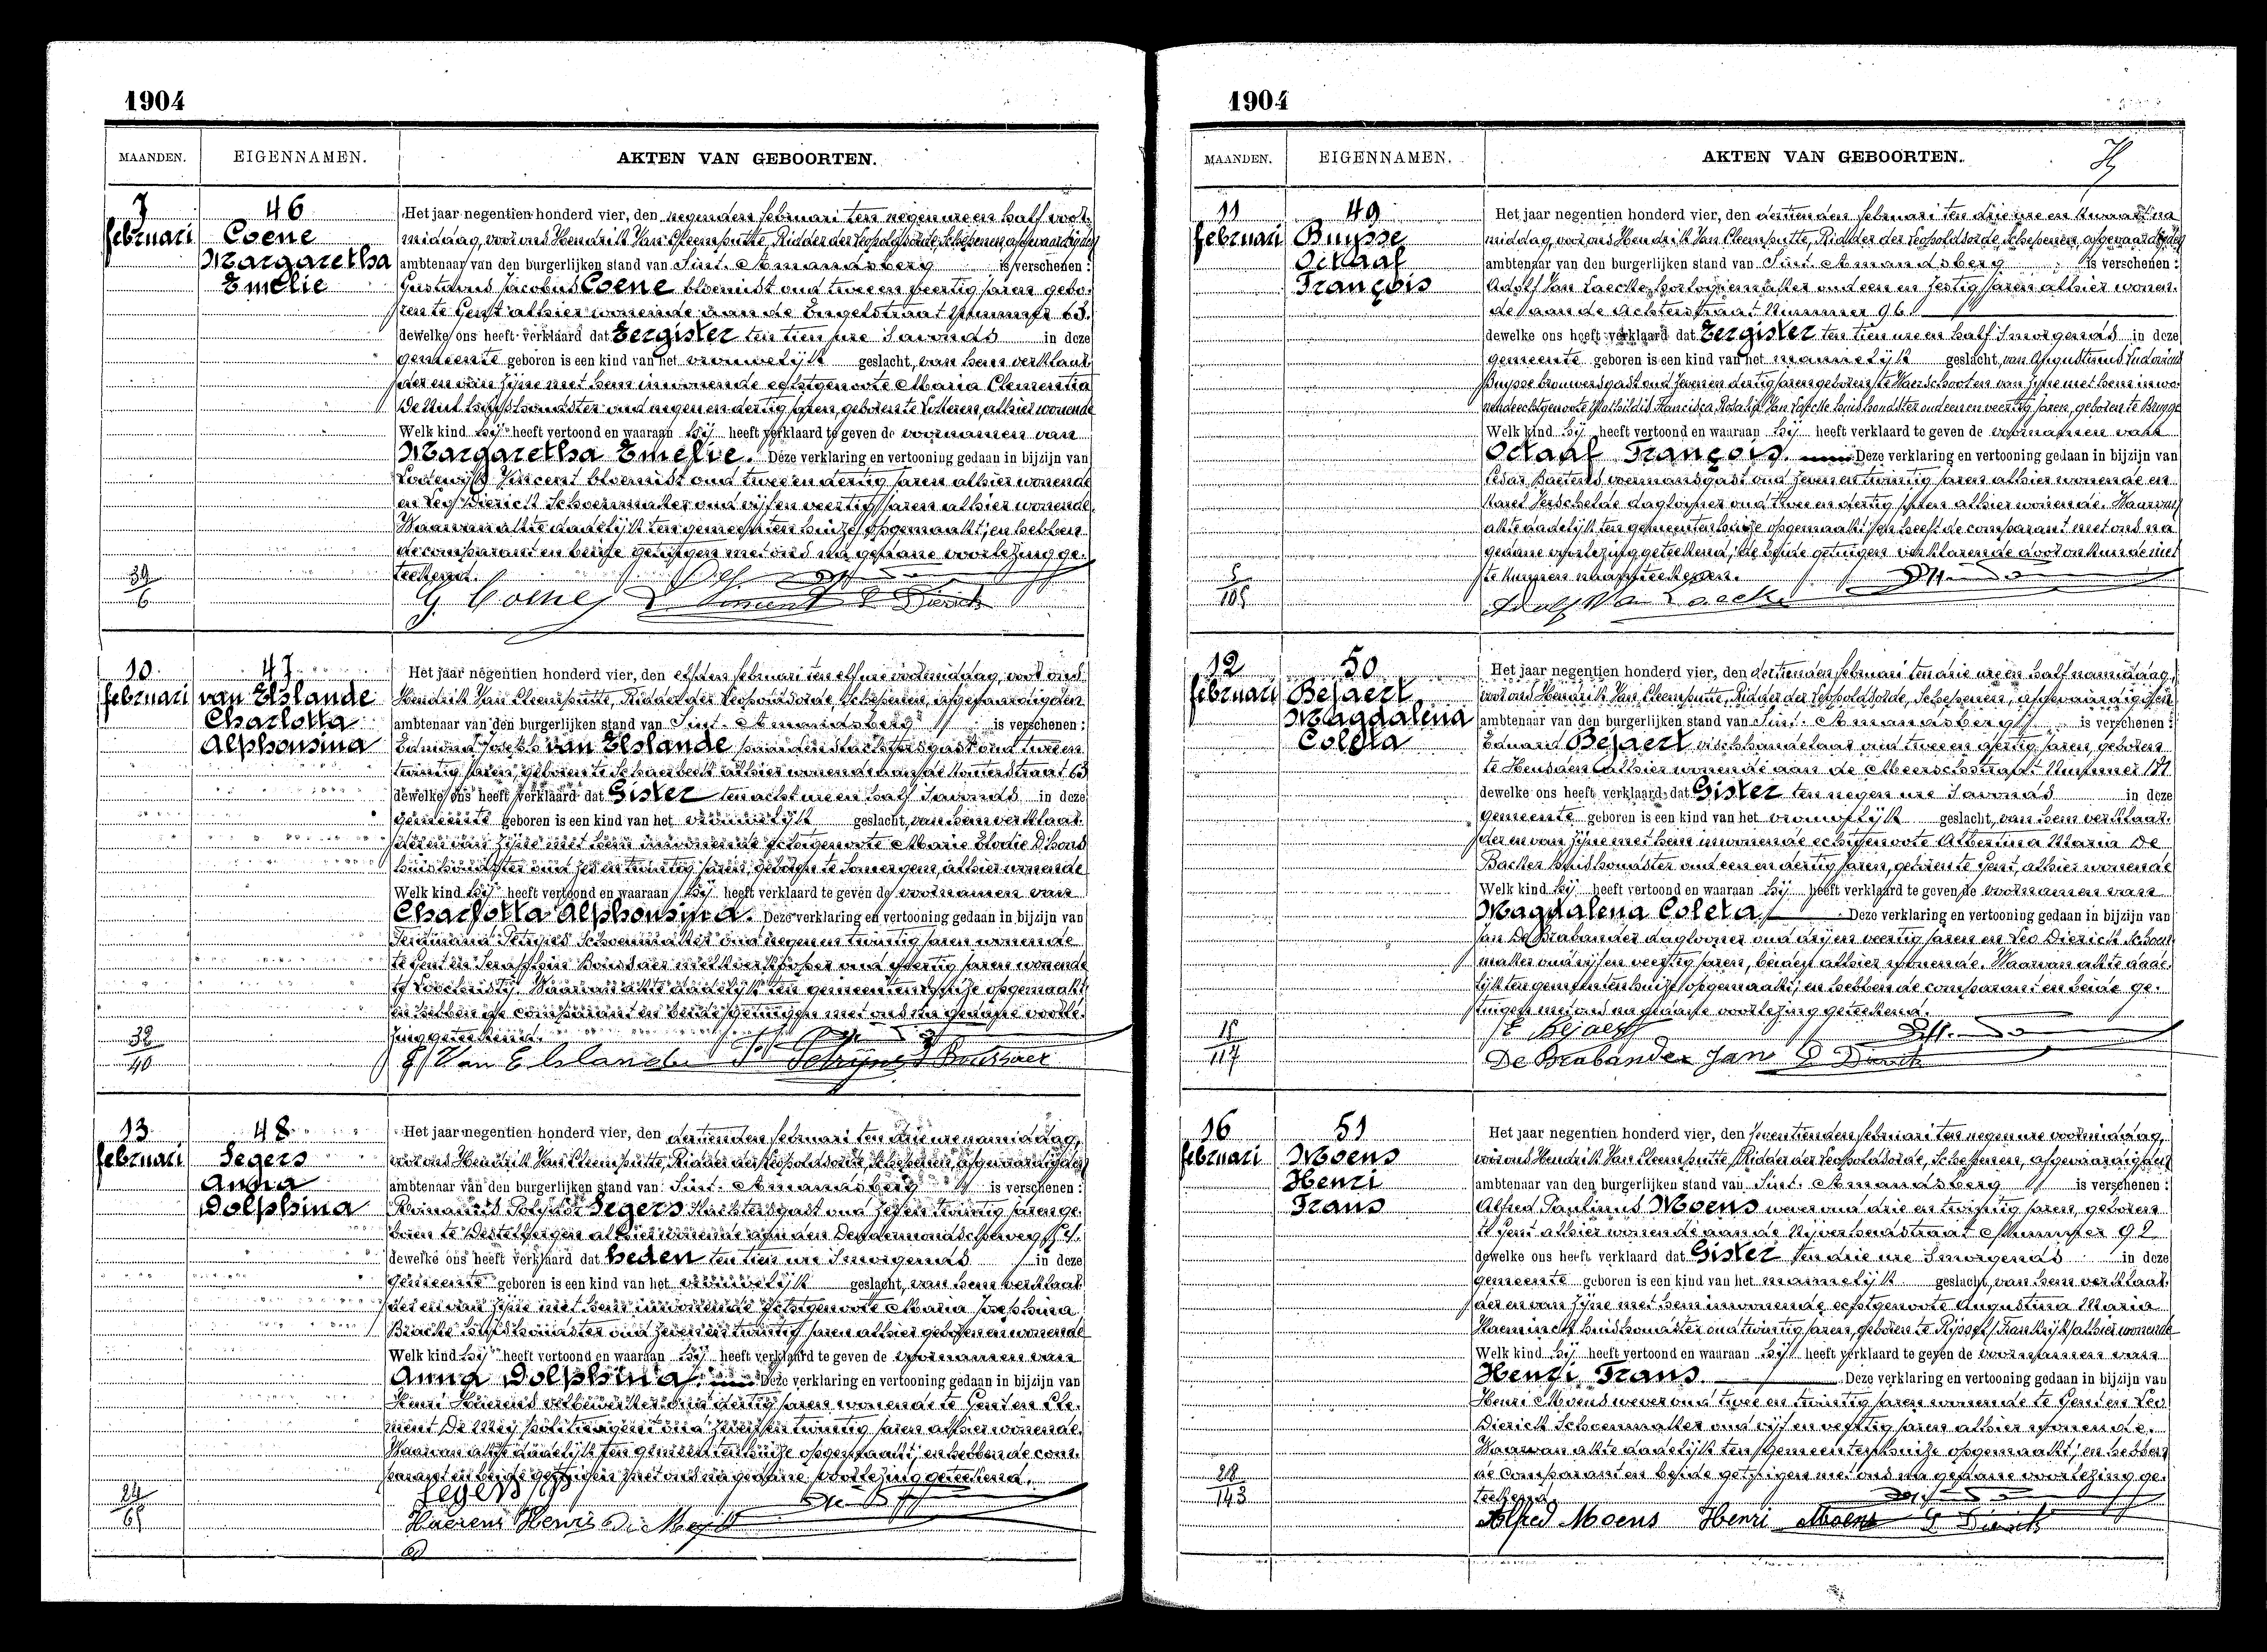 1904
MAANDEN. EIGENNAMEN. AKTEN VAN GEBOORTEN.
7 februari
46
Coene
Margaretha
Emelie
Het jaar negentien honderd vier, den negenden februari ten negen ure en half voor-
middag, voor ons Hendrik Van Cleemputte, Ridder der Leopoldsorde, Schepenen, afgevaardigden
ambtenaar van den burgerlijken stand van Sint-Amandsberg is verschenen:
Gustavus Jacobus Coene bloemist oud twee en veertig jaren gebo-
ren te Gent alhier wonende aan de Engelstraat Nummer 63.
dewelke ons heeft verklaard dat Eergister ten tien ure 's avonds in deze
gemeente geboren is een kind van het vrouwelijk geslacht, van hem verklaar-
der en van zijne met hem inwonende echtgenoote Maria Clementia
huishoudster oud negen en dertig jaren, geboren te alhier wonende
Welk kind hij heeft vertoond en waaraan hij heeft verklaard te geven de voornamen van
Margaretha Emelie. Deze verklaring en vertooning gedaan in bijzijn van
Lodewijk Vincent bloemist oud twee en dertig jaren alhier wonende
en Leo Dierick Schoenmaker oud vijf en veertig jaren alhier wonende.
Waarvan akte dadelijk ten gemeentenhuize opgemaakt, en hebben
de comparant en beide getuigen met ons na gedane voorlezing ge-
teekend.
39
6
G. Coene L. Vincent L Dierick
10 februari
47
van Elslande
Charlotta
Alphonsina
Het jaar negentien honderd vier, den elfden februari ten elf ure voormiddag, voor ons
Hendrik Van Cleemputte, Ridder der Leopoldsorde, Schepenen, afgevaardigden
ambtenaar van den burgerlijken stand van Sint-Amandsberg is verschenen:
Edmond Joseph van Elslande oud twee en
twintig jaren, geboren te Schaerbeek alhier wonende aan de 63
dewelke ons heeft verklaard dat Gister ten acht ure en half 's avonds in deze
gemeente geboren is een kind van het vrouwelijk geslacht, van hem verklaar-
der en van zijne met hem inwonende echtgenoote Marie Elodie D'hont
huishoudster oud zes en twintig jaren, geboren te Somergem, alhier wonende
Welk kind hij heeft vertoond en waaraan hij heeft verklaard te geven de voornamen van
Charlotta Alphonsina. Deze verklaring en vertooning gedaan in bijzijn van
Ferdinand Schoenmaker oud negen en twintig jaren wonende
te Gent en Seraphin melkverkooper oud veertig jaren wonende
te Loochristy. Waarvan akte dadelijk ten gemeentenhuize opgemaakt,
en hebben de comparant en beide getuigen met ons na gedane voorle-
zing geteekend.
32
40
E. Van Elslande
13 februari
48
Segers
Anna
Dolphina
Het jaar negentien honderd vier, den dertienden februari ten drie ure namiddag,
voor ons Hendrik Van Cleemputte, Ridder der Leopoldsorde, Schepenen, afgevaardigden
ambtenaar van den burgerlijken stand van Sint-Amandsberg is verschenen:
Romanus Segers oud zes en twintig jaren ge-
boren te Destelbergen alhier wonende aan den Dendermondschenweg
dewelke ons heeft verklaard dat heden ten tien ure 's morgends in deze
gemeente geboren is een kind van het vrouwelijk geslacht, van hem verklaar-
der en van zijne met hem inwonende echtgenoote Maria Josephina
Bracke huishoudster oud zeven en twintig jaren alhier geboren en wonende
Welk kind hij heeft vertoond en waaraan hij heeft verklaard te geven de voornamen van
Anna Dolphina. Deze verklaring en vertooning gedaan in bijzijn van
Henri Haerens oud dertig jaren wonende te Gent en Cle-
ment De Mey politieagent oud zeven en twintig jaren alhier wonende.
Waarvan akte dadelijk ten gemeentenhuize opgemaakt, en hebben de com-
parant en beide getuigen met ons na gedane voorlezing geteekend.
24
65
Segers
Haerens Henri De Mey
1904
MAANDEN. EIGENNAMEN. AKTEN VAN GEBOORTEN.
11 februari
49
Buysse
Octaaf
François
Het jaar negentien honderd vier, den dertienden februari ten drie ure en kwaart na
middag, voor ons Hendrik Van Cleemputte, Ridder der Leopoldsorde, Schepenen, afgevaardigden
ambtenaar van den burgerlijken stand van Sint-Amandsberg is verschenen:
Adolf Van Laecke horlogiemaker oud een en zestig jaren alhier wonen-
de aan de Achterstraat Nummer 96
dewelke ons heeft verklaard dat Eergister ten tien ure en half 's morgends in deze
gemeente geboren is een kind van het mannelijk geslacht, van Augustinus Ludovicus
Buysse brouwersgast oud zeven en dertig jaren geboren te Waerschoot en van zijne met hem inwo-
nende echtgenoote Mathildis Francisca Rosalia Van Laecke huishoudster oud een en veertig jaren, geboren te Brugge
Welk kind hij heeft vertoond en waaraan hij heeft verklaard te geven de voornamen van
Octaaf François. Deze verklaring en vertooning gedaan in bijzijn van
Cesar voermansgast oud zeven en twintig jaren alhier wonende en
Karel Verschelde daglooner oud twee en dertig jaren alhier wonende. Waarvan
akte dadelijk ten gemeentenhuize opgemaakt, en heeft de comparant met ons na
gedane voorlezing geteekend, de beide getuigen verklarende door onkunde niet
te kunnen naamteekenen.
Adolf Van Laecke
12 februari
50
Bejaert
Magdalena
Coleta
Het jaar negentien honderd vier, den dertienden februari ten drie ure en half namiddag,
voor ons Hendrik Van Cleemputte, Ridder der Leopoldsorde, Schepenen, afgevaardigden
ambtenaar van den burgerlijken stand van Sint-Amandsberg is verschenen:
Eduard Bejaert vischhandelaar oud twee en dertig jaren, geboren
te Heusden alhier wonende aan de Meerschstraat Nummer
dewelke ons heeft verklaard dat Gister ten negen ure 's avonds in deze
gemeente geboren is een kind van het vrouwelijk geslacht, van hem verklaar-
der en van zijne met hem inwonende echtgenoote Albertina Maria De
Backer huishoudster oud een en dertig jaren, geboren te Gent, alhier wonende
Welk kind hij heeft vertoond en waaraan hij heeft verklaard te geven de voornamen van
Magdalena Coleta. Deze verklaring en vertooning gedaan in bijzijn van
Jan De Brabander daglooner oud drij en veertig jaren en Leo Dierick Schoen-
maker oud vijf en veertig jaren, beiden alhier wonende. Waarvan akte dade-
lijk ten gemeentenhuize opgemaakt, en hebben de comparant en beide ge-
tuigen met ons na gedane voorlezing geteekend.
E Bejaert
De Brabander Jan L Dierick
16 februari
51
Moens
Henri
Frans
Het jaar negentien honderd vier, den zeventienden februari ten negen ure voormiddag,
voor ons Hendrik Van Cleemputte, Ridder der Leopoldsorde, Schepenen, afgevaardigden
ambtenaar van den burgerlijken stand van Sint-Amandsberg is verschenen:
Alfred Paulinus Moens wever oud drie en twintig jaren, geboren
te Gent alhier wonende aan de Nijverheidstraat Nummer 92
dewelke ons heeft verklaard dat Gister ten drie ure 's morgends in deze
gemeente geboren is een kind van het mannelijk geslacht, van hem verklaar-
der en van zijne met hem inwonende echtgenoote Augustina Maria
huishoudster oud twintig jaren, geboren te Rijssel (Frankrijk) alhier wonende
Welk kind hij heeft vertoond en waaraan hij heeft verklaard te geven de voornamen van
Henri Frans Deze verklaring en vertooning gedaan in bijzijn van
Henri Moens wever oud twee en twintig jaren wonende te Gent en Leo
Dierick Schoenmaker oud vijf en veertig jaren alhier wonende.
Waarvan akte dadelijk ten gemeentenhuize opgemaakt, en hebben
de comparant en beide getuigen met ons na gedane voorlezing ge-
teekend.
28
143
Alfred Moens Henri Moens L Dierick